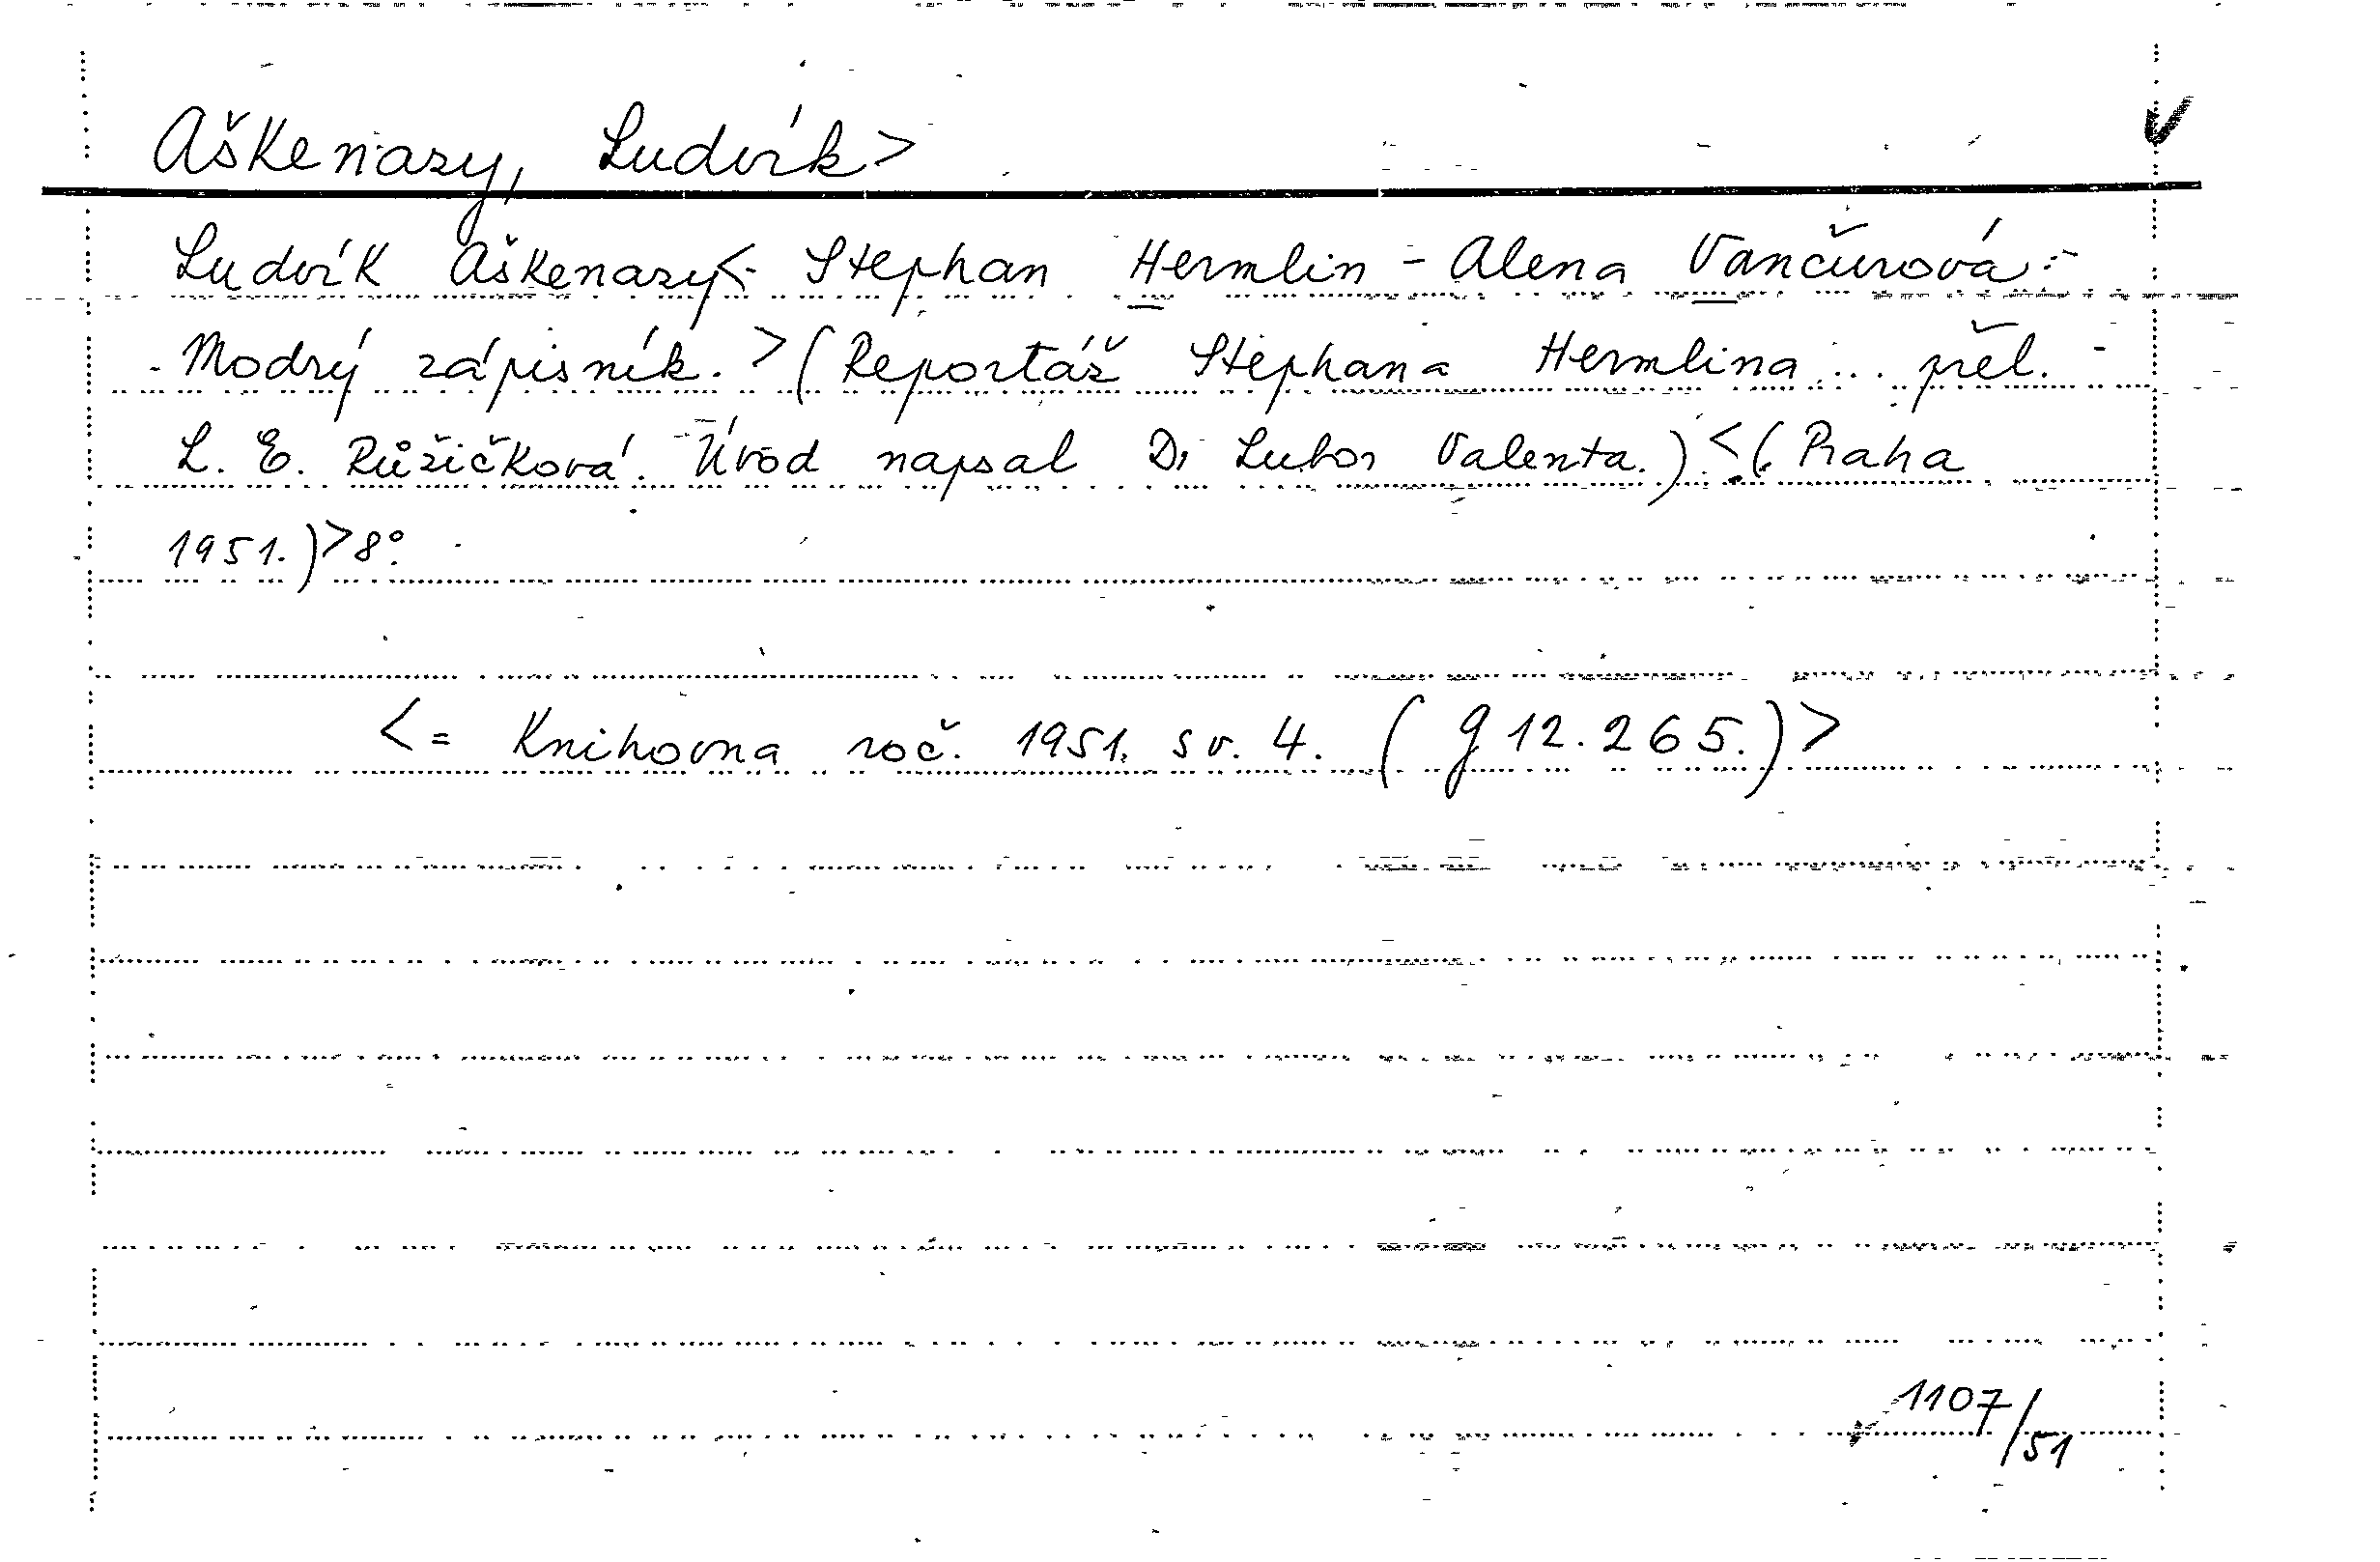 Aškenazy, Ludvík>
Ludvík Aškenazy<- Stephan Hermlin - Alena Vančurová:
Modrý zápisník.>(Reportáž Stephana Hermlina... přel.
L. E. Růžičková. Úvod napsal Dr Lubor Valenta.)<(Praha
1951.)>8°.
<= Knihovna roč. 1951. sv. 4. (g 12.265.)>
1107/51